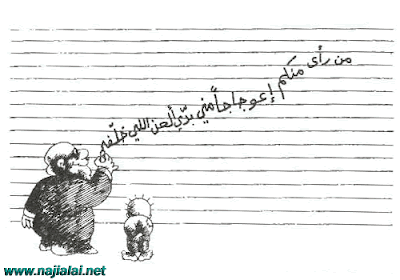 من رأى منكم إعوجاجاً مني بدّي ألعن اللي خلّفه
www.najialali.net